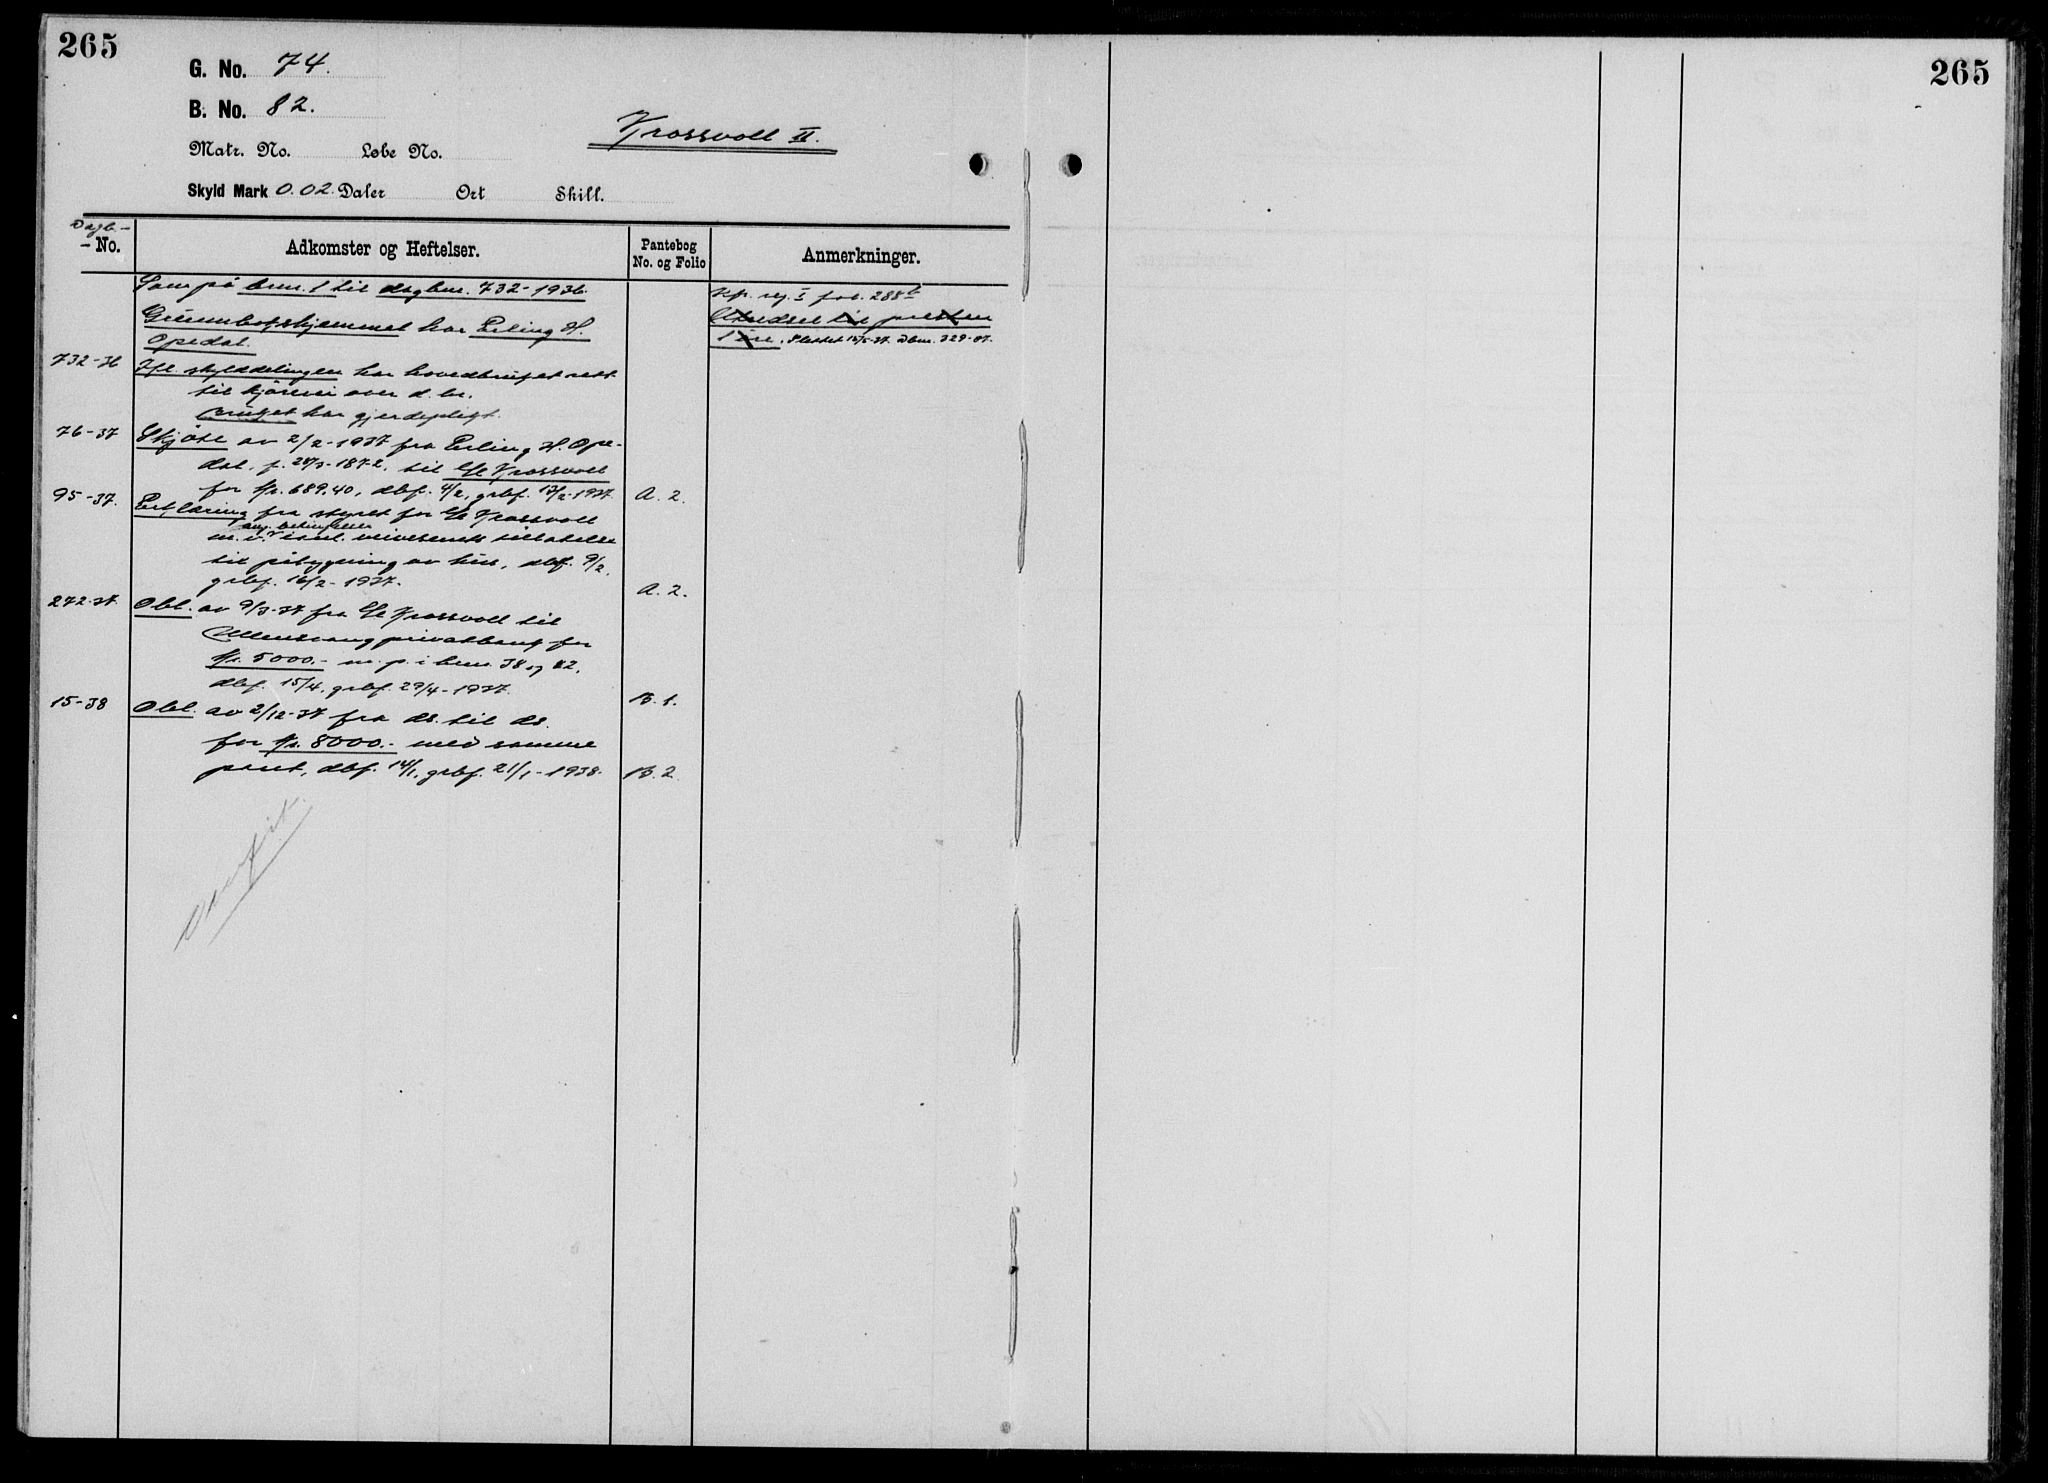 265
265
G. No. 74.
B. No. 82.
Krossvoll II.
Matr. No. Løbe No.
Skyld Mark 0.02. Daler Ort Skill.
Dagb.-
No.
Adkomster og Heftelser.
Pantebog
No. og Folio
Anmerkninger.
Som på bnr. 1 til dagbnr. 732-1936.
Kfr. reg. I fol. 288b
Grunnbokshjemmel har Erling H.
Opedal.
Utredsel til presten
1 øre. Slettet 15/5-37. Dbnr. 329-37.
732-36
Ifl. skylddelingen har hovedbruket rett
til kjörevei over d. br.
Bruket har gjerdeplikt.
76-37
Skjöte av 2/2-1937 fra Erling H. Ope-
dal, f. 24/3-1872, til L/L Krossvoll
for kr. 689,40, dbf. 4/2, grbf. 13/2-1937.
A. 2.
95-37.
Erklæring fra styret for L/L Krossvoll
ang. betingelser
m. v. innt. veivesenets tillatelse
til påbygning av hus, dbf. 9/2,
grbf. 16/2-1937.
A. 2.
272-37.
Obl. av 9/3-37 fra L/L Krossvoll til
Ullensvang privatbank for
kr. 5000.- m. p. i bnr. 38 og 82,
dbf. 15/4, grbf. 29/4-1937.
B. 1.
15-38
Obl. av 2/12-37 fra ds. til ds.
for kr. 8000.- med samme
pant, dbf. 14/1, grbf. 21/1-1938.
B. 2.